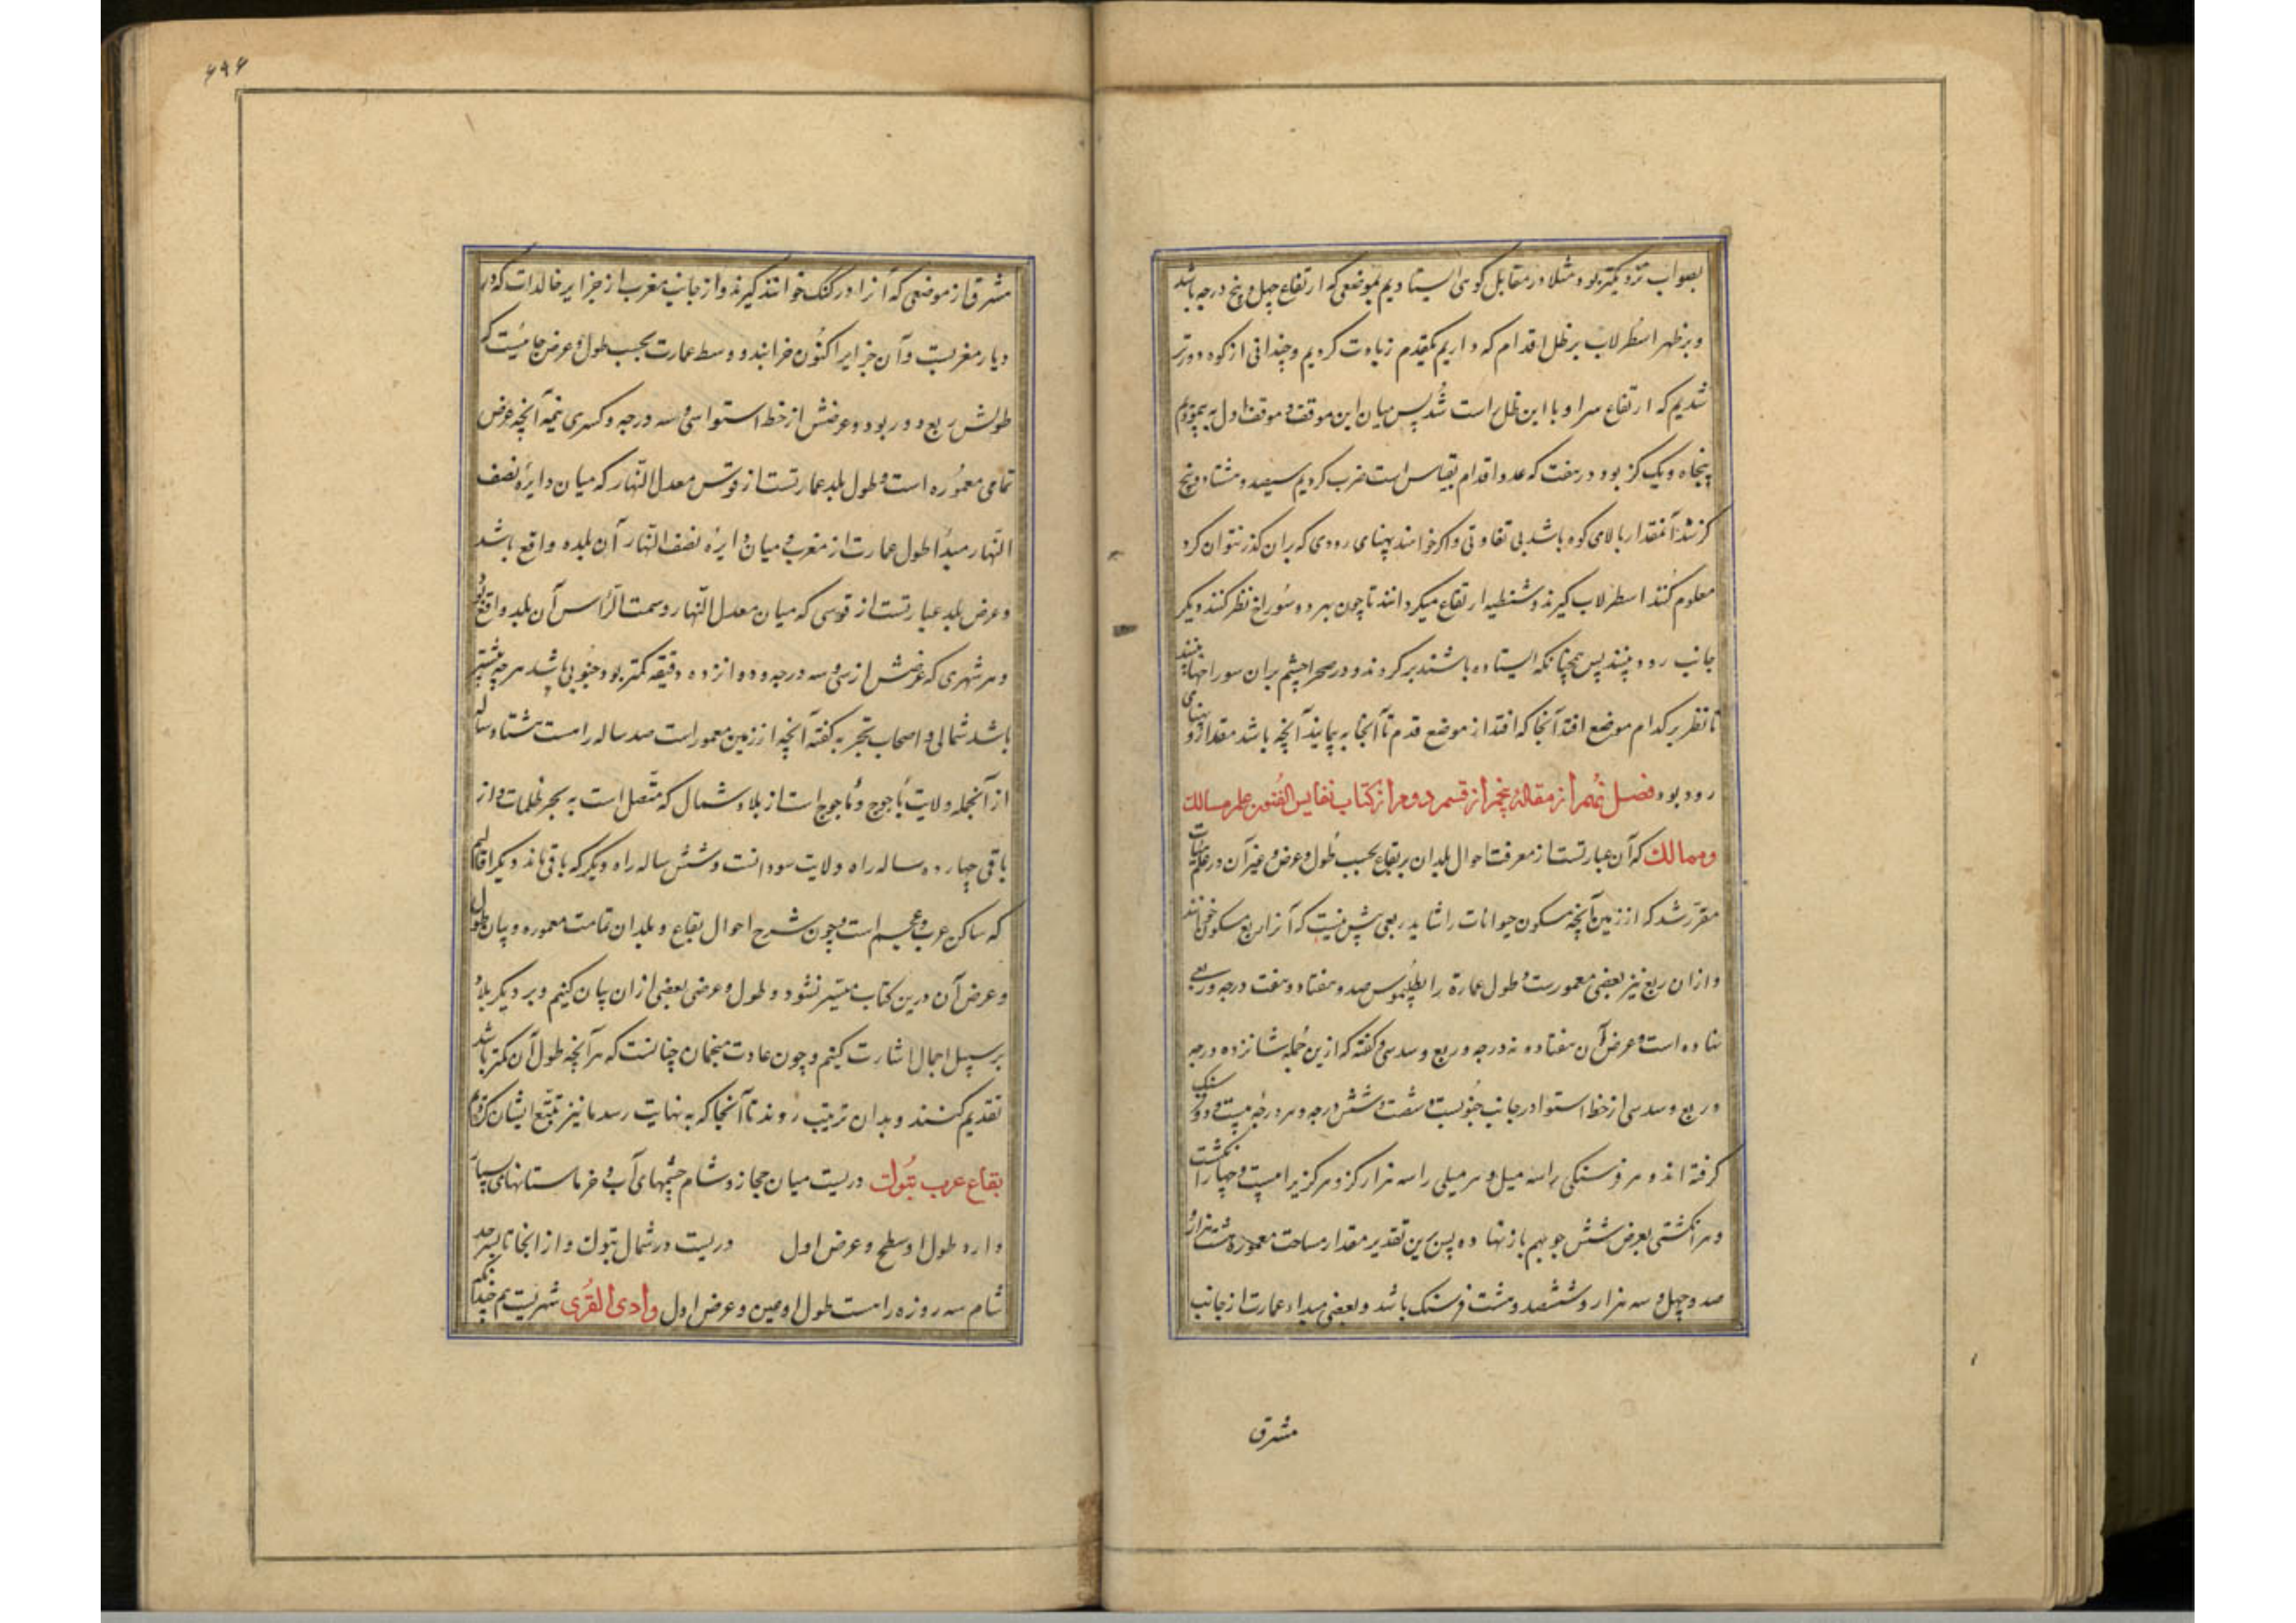 بصواب نزدیکتر بود مثلا در مقابل کوهی ایستادیم بموضعی که ارتفاع چهل و پنج درجه باشد
و بر ظهر اسطرلاب بر ظل اقدام که داریم یکقدم زیادت کردیم و چندانی از کوه دورتر
شدیم که ارتفاع سر او با این ظل راست شد پس میان این موقف و موقف اول به پیمودیم
پنجاه و یک گز بود در هفت که عدد اقدام مقیاس است ضرب کردیم سیصد و پنجاه و هفت
کز شد آنمقدار بالای کوه باشد بی تفاوتی و اکر خواهند پهنای رودی که بران کذر نتوان کرد
معلوم کنند اسطرلاب کیرند و شظیه ارتفاع میکردانند تا چون بهر دو سوراخ نظر کنند دیکر
جانب رود بینند پس همچنانکه ایستاده باشند برکردند و در صحرا چشم بران سوراخها نهند
تا نظر بر کدام موضع افتد آنجا که افتد از موضع قدم تا آنجا به پیمایند آنچه باشد مقدار پهنای
رود بود فصل نهم از مقاله پنجم از قسم دوم از کتاب نفایس الفنون علم مسالک
و ممالک که آن عبارتست از معرفت احوال بلدان و بقاع بحسب طول و عرض و غیر آن در علم هیأت
مقرر شد که از زمین آنچه مسکون حیوانات را شاید ربعی بیش نیست که آنرا ربع مسکون خوانند
و ازان ربع نیز بعضی معمورست و طول عمارة را بطلیموس صد و هفتاد و هفت درجه و ربعی
نهاده است و عرض آن هفتاد و نه درجه و ربع و سدسی و کفته که ازین جمله شانزده درجه
و ربع و سدسی از خط استوا در جانب جنوبست و شصت و شش درجه و هر درجه بیست و دو فرسنک
کرفته اند و هر فرسنکی را سه میل و هر میلی را سه هزار کز و هر کزی را بیست و چهار انکشت
و هر انکشتی بعرض شش جو بهم باز نهاده پس برین تقدیر مقدار مساحت معموره هشت هزار هزار و
صد و چهل و سه هزار و ششصد و هشت فرسنک باشد و بعضی مبداء عمارت از جانب
مشرق
۶۹۶
مشرق از موضعی که آنرا در کنک خوانند کیرند و از جانب مغرب از جزایر خالدات که در
دیار مغربست و آن جزایر اکنون خرابند و وسط عمارت بحسب طول و عرض جائیست که
طولش ربع دور بود و عرضش از خط استوا سی و سه درجه و کسری نیمه آنچه عرض
تمامی معموره است و طول بلد عبارتست از قوس معدل النهار که میان دایره نصف
النهار مبدأ طول عمارت از مغرب و میان دایره نصف النهار آن بلده واقع باشد
و عرض بلد عبارتست از قوسی که میان معدل النهار و سمت الرأس آن بلد واقع بود
و هر شهری که عرضش از سی و سه درجه و دوازده دقیقه کمتر بود جنوبی باشد هرچه بیشتر
باشد شمالی و اصحاب تجربه کفته آنچه از زمین معمور است صد ساله راهست هشتاد ساله
از آنجمله ولایت یاجوج و ماجوج است از بلاد شمال که متصل است به بحر ظلمات و از
باقی چهارده ساله راه ولایت سودانست و شش ساله راه دیکر که باقی ماند دیکر اقالیم
که ساکن عرب و عجم است و چون شرح احوال بقاع و بلدان تمامت معموره و بیان طول
و عرض آن درین کتاب میسر نشود و طول و عرض بعضی ازان بیان کنیم و بر دیکر بلاد
بر سبیل اجمال اشارت کنیم و چون عادت منجمان چنانست که هر آنچه طول آن کمتر باشد
تقدیم کنند و بدان ترتیب روند تا آنجا که به نهایت رسد ما نیز تتبع ایشان کردیم
بقاع عرب تبوک دریست میان حجاز و شام چشمهای آب و خرماستانهای بسیار
دارد طول او سطح و عرض اول دریست در شمال تبوک و از انجا تا بسرحد
شام سه روزه راهست طول او مین و عرض اول وادی القری شهریست هم چندان